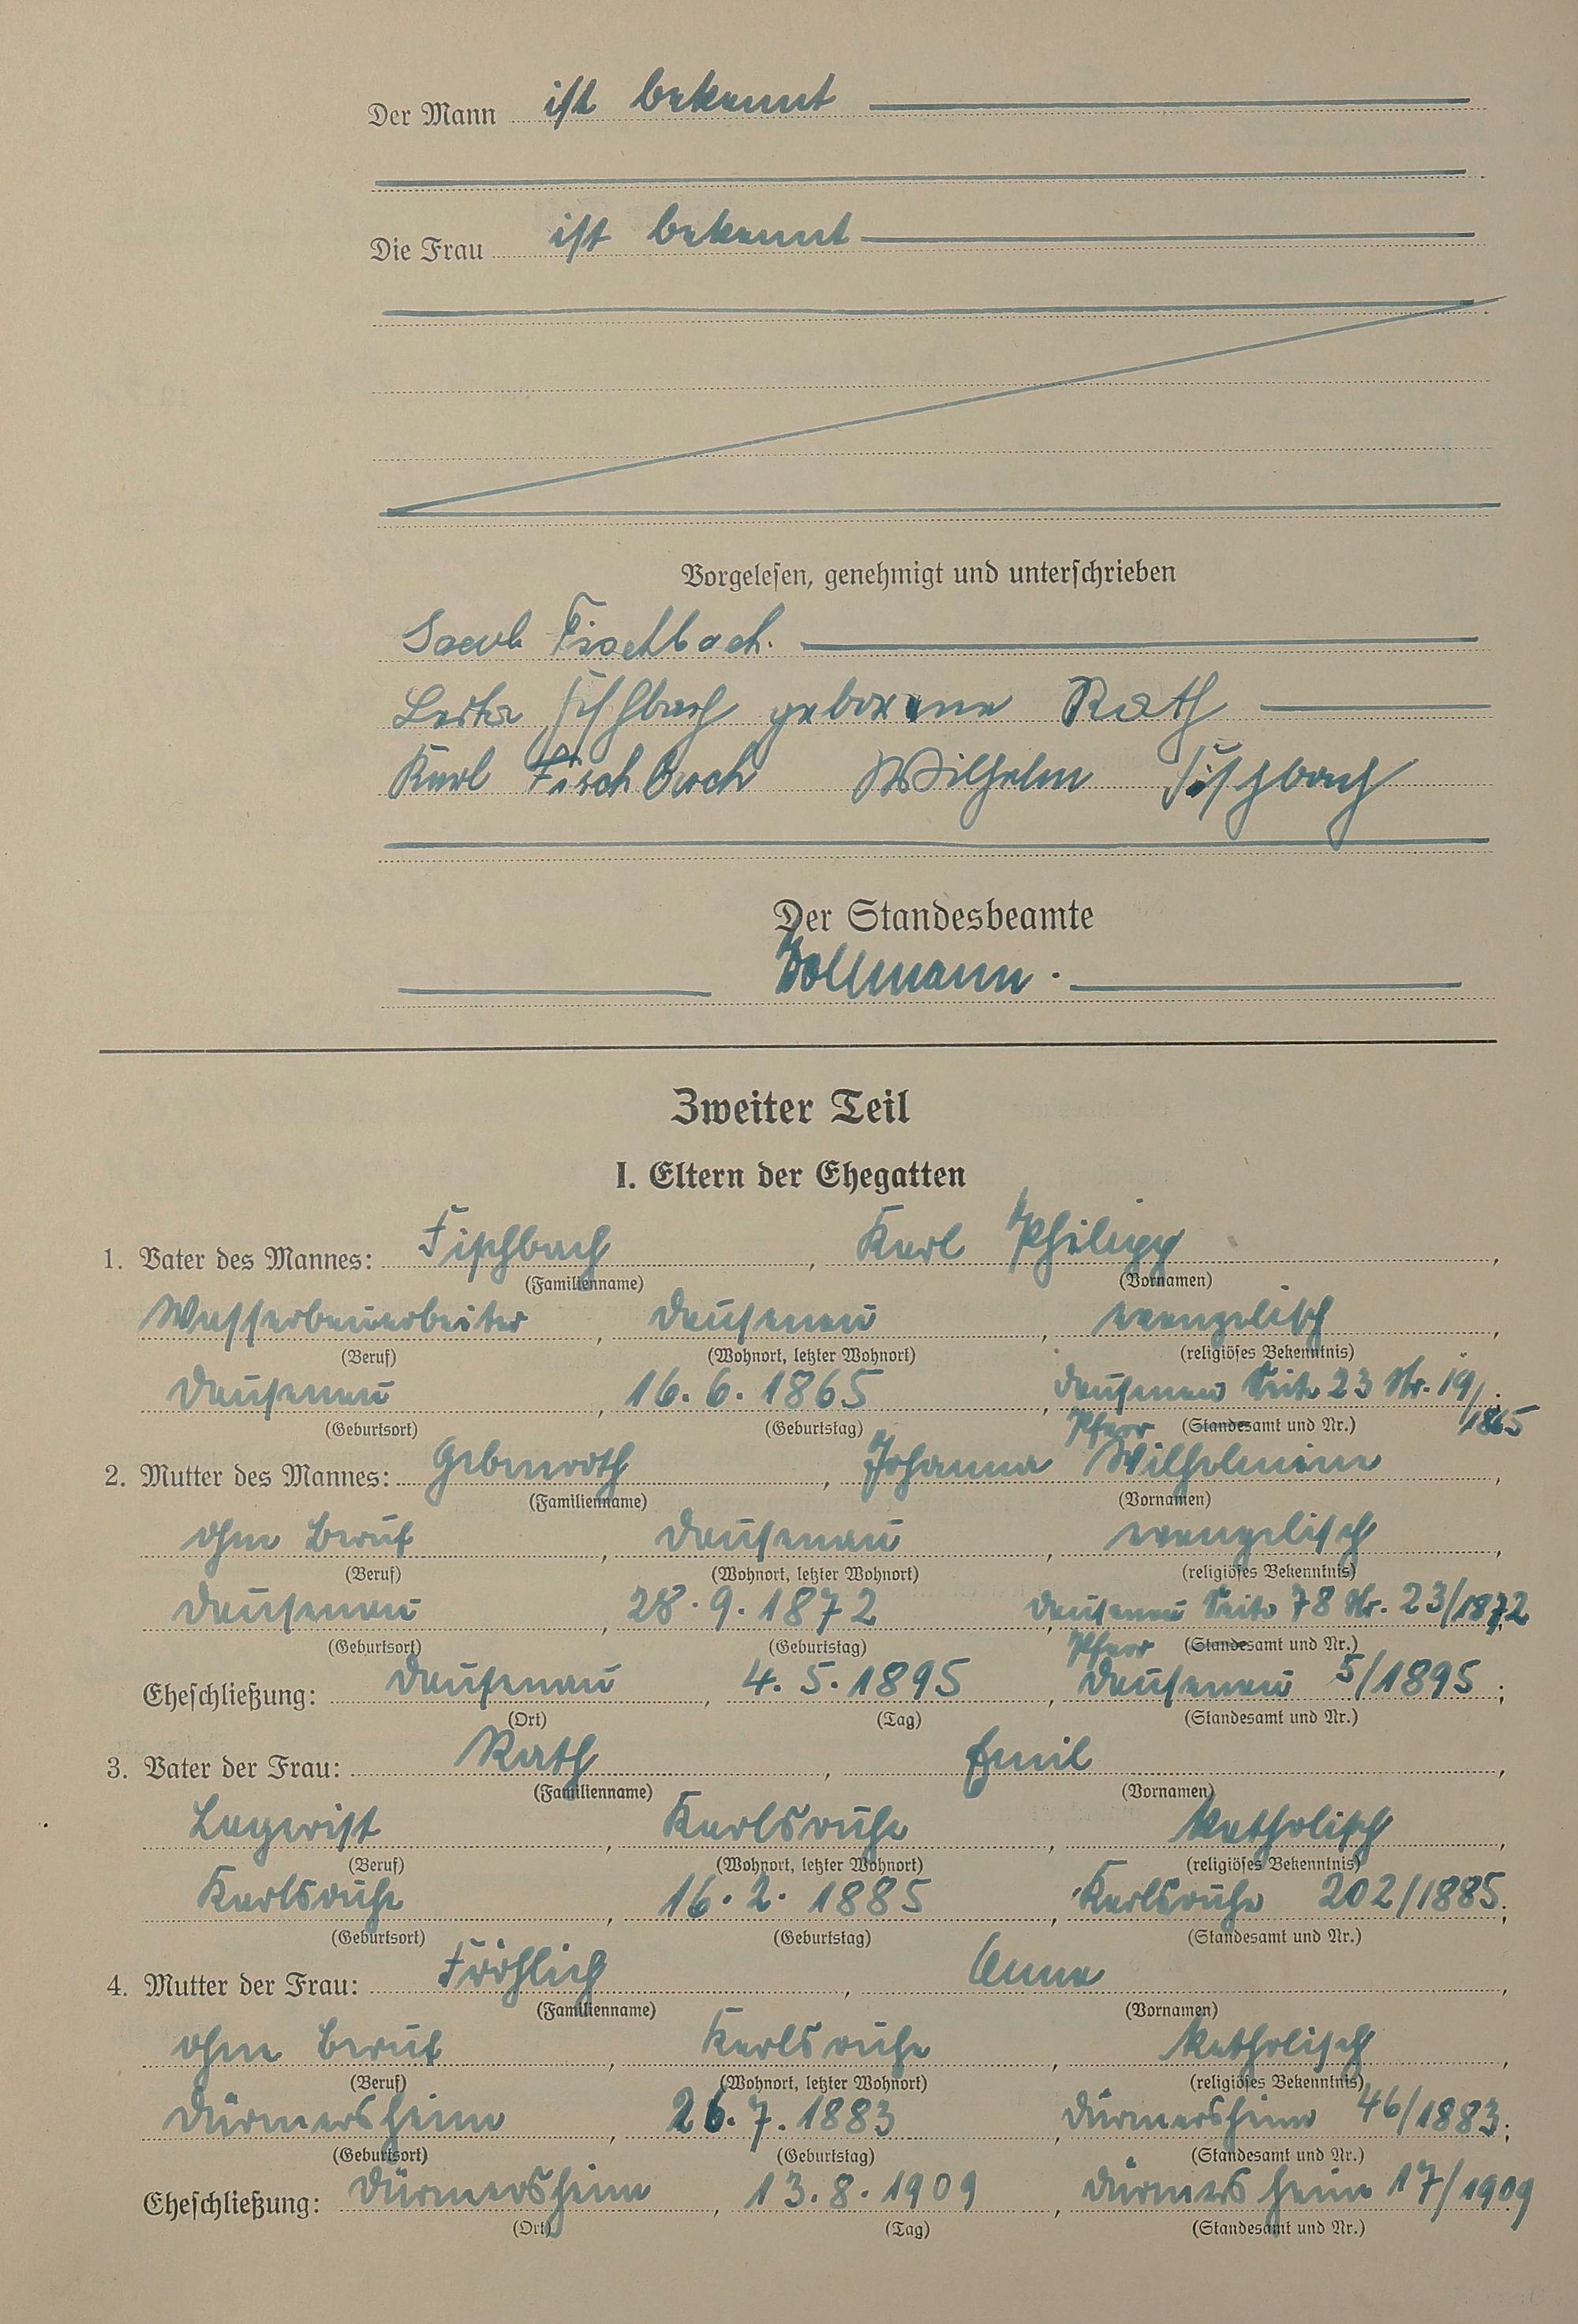 Der Mann ist bekannt
Die Frau ist bekannt
Vorgelesen, genehmigt und unterschrieben
Jacob Fischbach.
Berta Fischbach geborene Rath
Karl Fischbach Wilhelm Fischbach
Der Standesbeamte
Zweiter Teil
I. Eltern der Ehegatten
1. Vater des Mannes: Fischbach, Karl Philipp,
(Familienname) (Vornamen)
Wasserbauarbeiter, Dausenau, evangelisch,
(Beruf) (Wohnort, letzter Wohnort) (religiöses Bekenntnis)
Dausenau, 16.6.1865, Dausenau Seite 23 Nr. 19/1865
(Geburtsort) (Geburtstag) Pfarr (Standesamt und Nr.)
2. Mutter des Mannes: Gebenroth, Johanna Wilhelmine,
(Familienname) (Vornamen)
ohne Beruf, Dausenau, evangelisch,
(Beruf) (Wohnort, letzter Wohnort) (religiöses Bekenntnis)
Dausenau, 28.9.1872, Dausenau Seite 78 Nr. 23/1872
(Geburtsort) (Geburtstag) Pfarr (Standesamt und Nr.)
Eheschließung: Dausenau, 4.5.1895, Dausenau 5/1895;
(Ort) (Tag) (Standesamt und Nr.)
3. Vater der Frau: Rath, Emil,
(Familienname) (Vornamen)
Lagerist, Karlsruhe, katholisch,
(Beruf) (Wohnort, letzter Wohnort) (religiöses Bekenntnis)
Karlsruhe, 16.2.1885, Karlsruhe 202/1885;
(Geburtsort) (Geburtstag) (Standesamt und Nr.)
4. Mutter der Frau: Fröhlich, Anna,
(Familienname) (Vornamen)
ohne Beruf, Karlsruhe, katholisch,
(Beruf) (Wohnort, letzter Wohnort) (religiöses Bekenntnis)
Dürmersheim, 26.7.1883, Dürmersheim 46/1883;
(Geburtsort) (Geburtstag) (Standesamt und Nr.)
Eheschließung: Dürmersheim, 13.8.1909, Dürmersheim 17/1909
(Ort) (Tag) (Standesamt und Nr.)